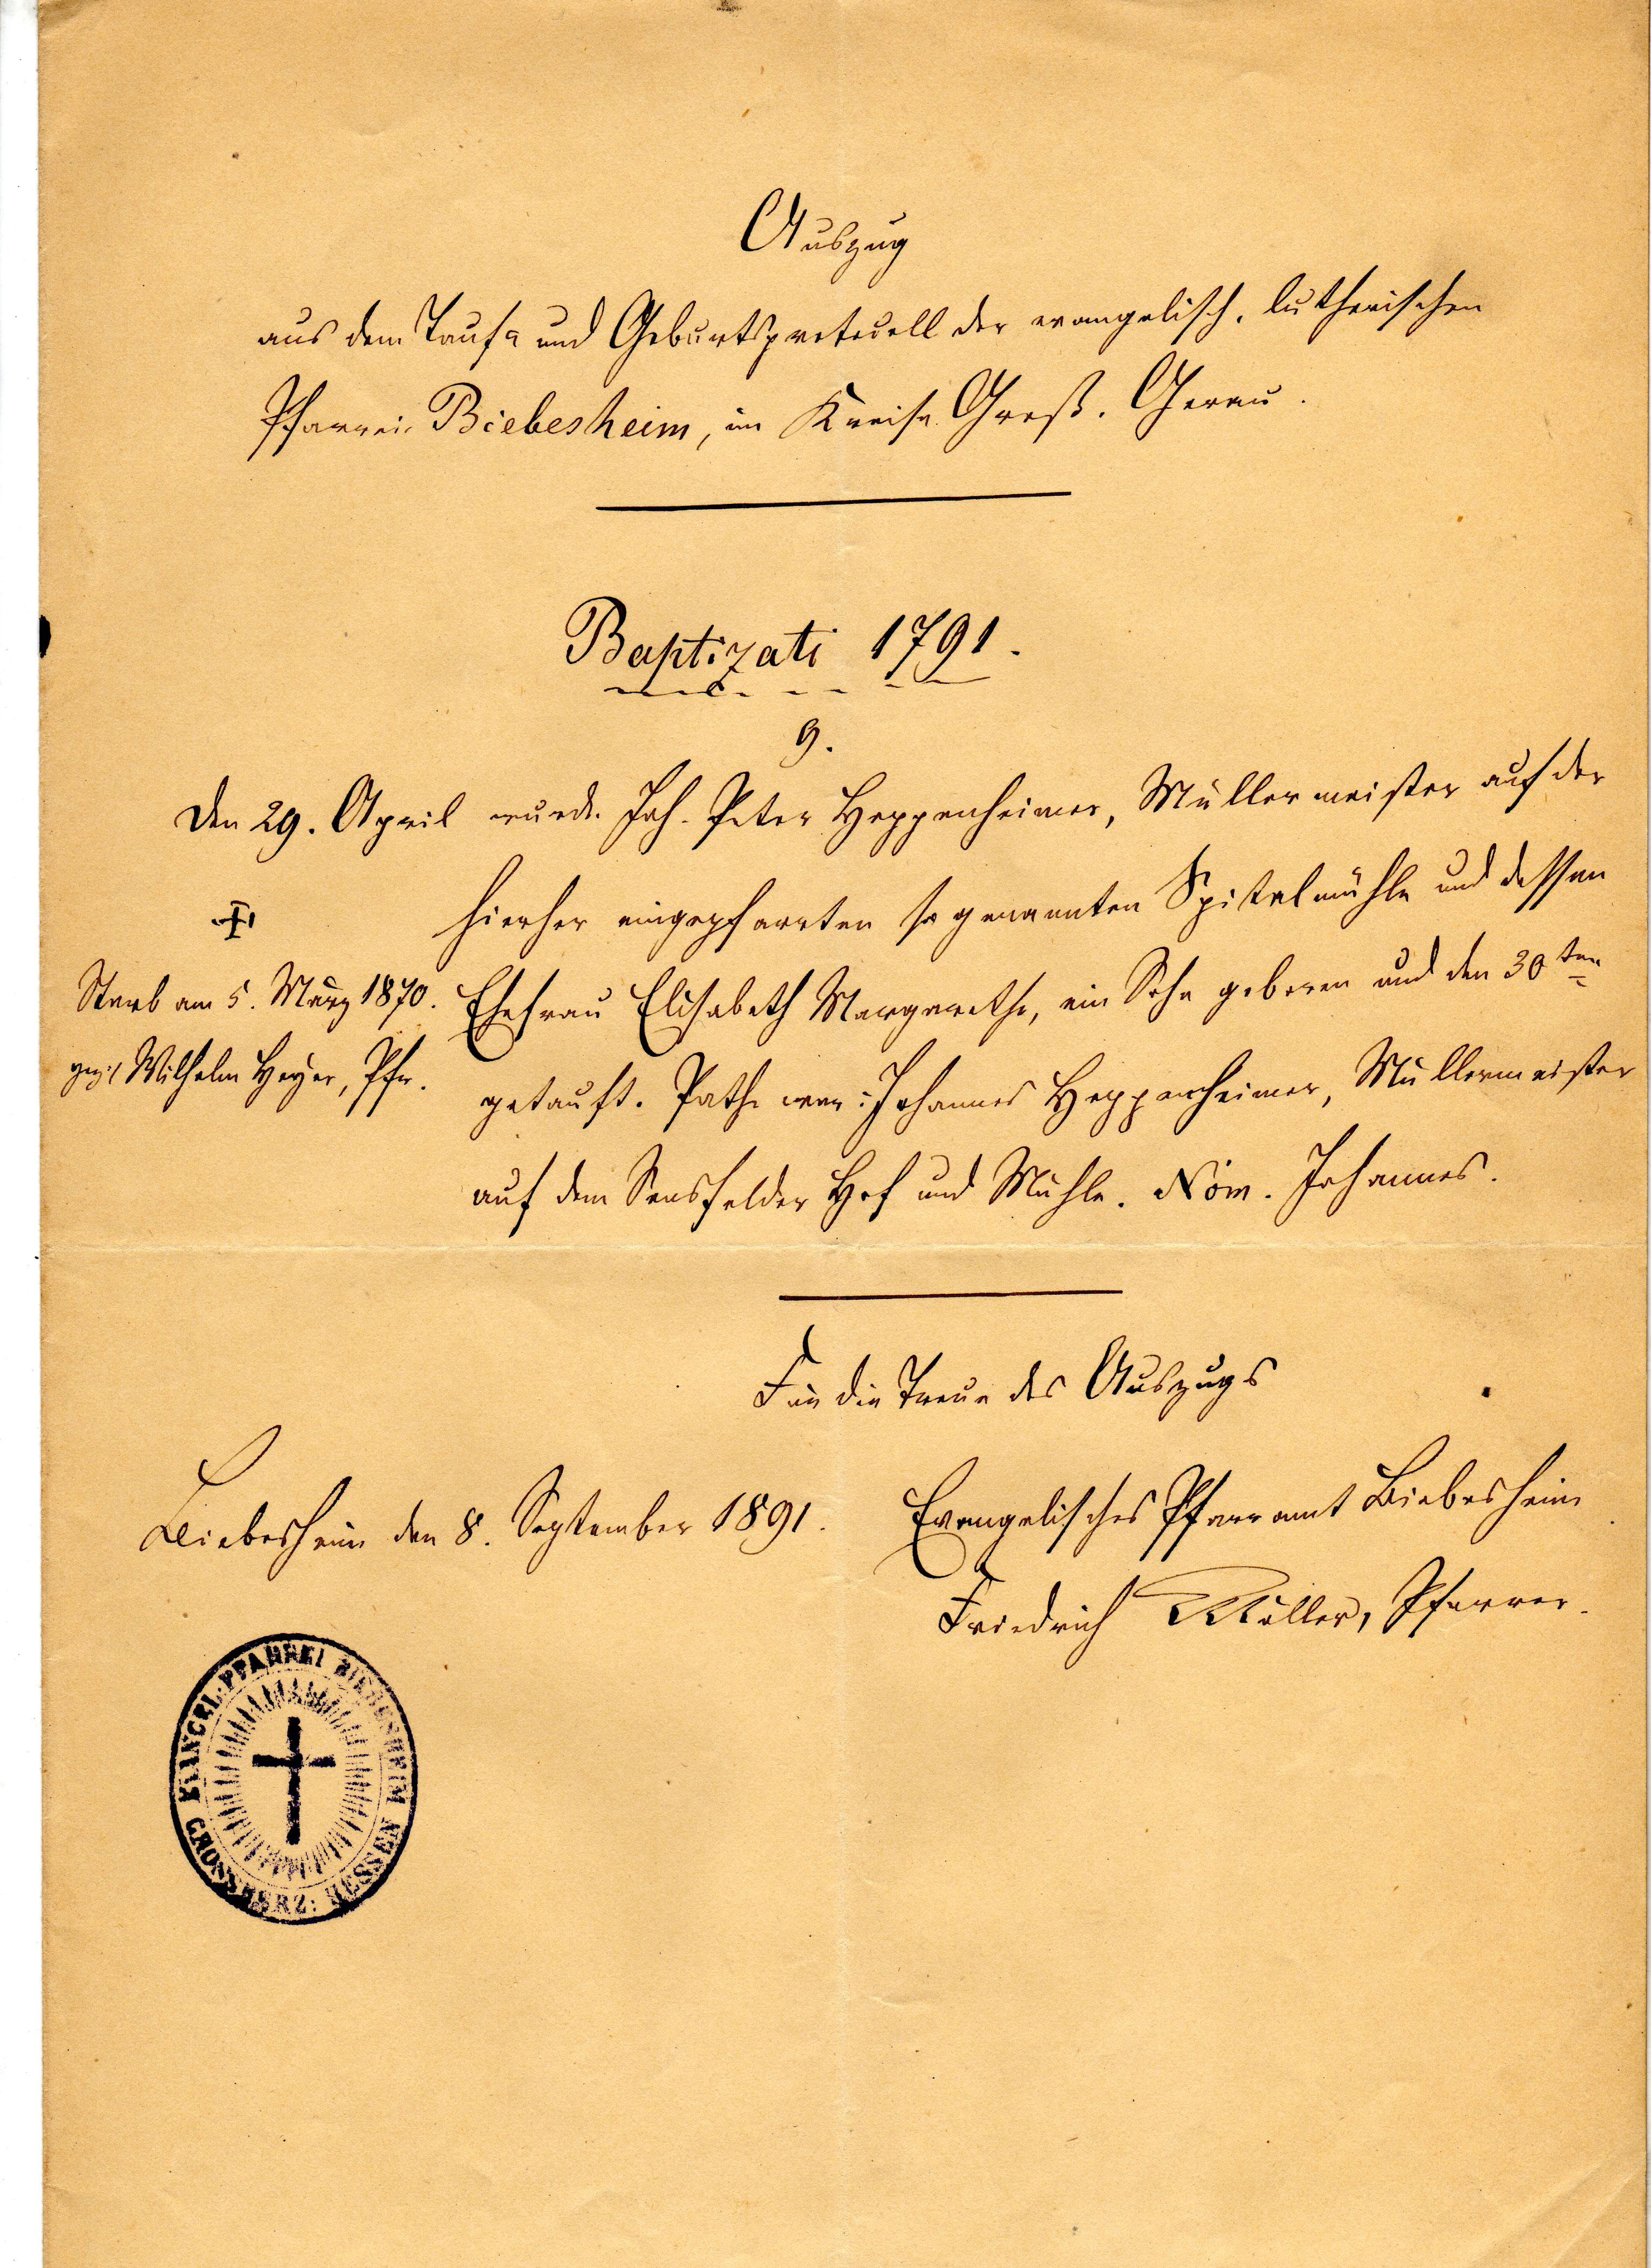 Auszug
aus dem Tauf- und Geburtsprotocoll der evangelisch-lutherischen
Pfarrei Biebesheim, im Kreise Groß-Gerau.
Baptizati 1791.
9.
Den 29. April wurde Joh. Peter Heppenheimer, Müllermeister auf der
hierher eingepfarrten so genannten Spitalmühle und dessen
Ehefrau Elisabeth Margarethe, ein Sohn geboren und den 30ten
getauft. Pathe war: Johannes Heppenheimer, Müllermeister
auf dem Sensfelder Hof und Mühle. Nom. Johannes.
†
Starb am 5. März 1870.
gez:/ Wilhelm Heyer, Pfr.
Für die Treue des Auszugs
Biebesheim den 8. September 1891.
Evangelisches Pfarramt Biebesheim
Friedrich Müller, Pfarrer.
EVANGEL: PFARREI BIEBESHEIM
GROSSHERZ: HESSEN